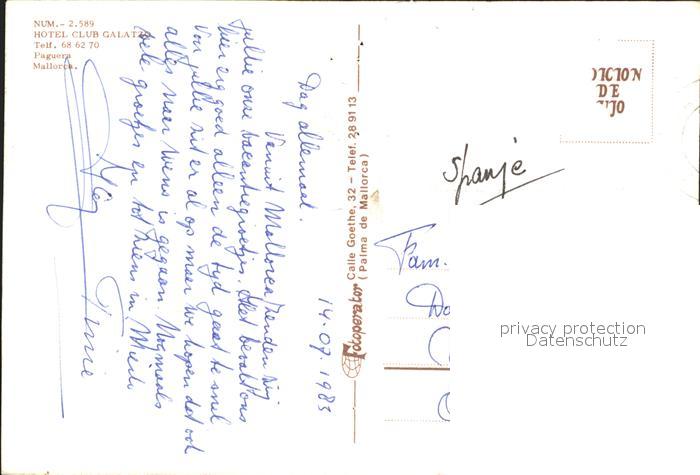 NUM.- 2.589
HOTEL CLUB GALATZO
Telf. 68 62 70
Paguera
Mallorca.
14.07.1983
Dag allemaal.
Vanuit Mallorca zenden wij
jullie onze vacantiegroetjes. Het bevalt ons
hier erg goed alleen de tyd gaat te snel
Voor jullie zit er al op maar we hopen dat ook
alles naar wens is gegaan. Nogmaals
vele groetjes en tot ziens in
Fotoperator Calle Goethe, 32 - Telef. 28 91 13
(Palma de Mallorca)
DICION
DE
Spanje
Fam.
privacy protection
Datenschutz